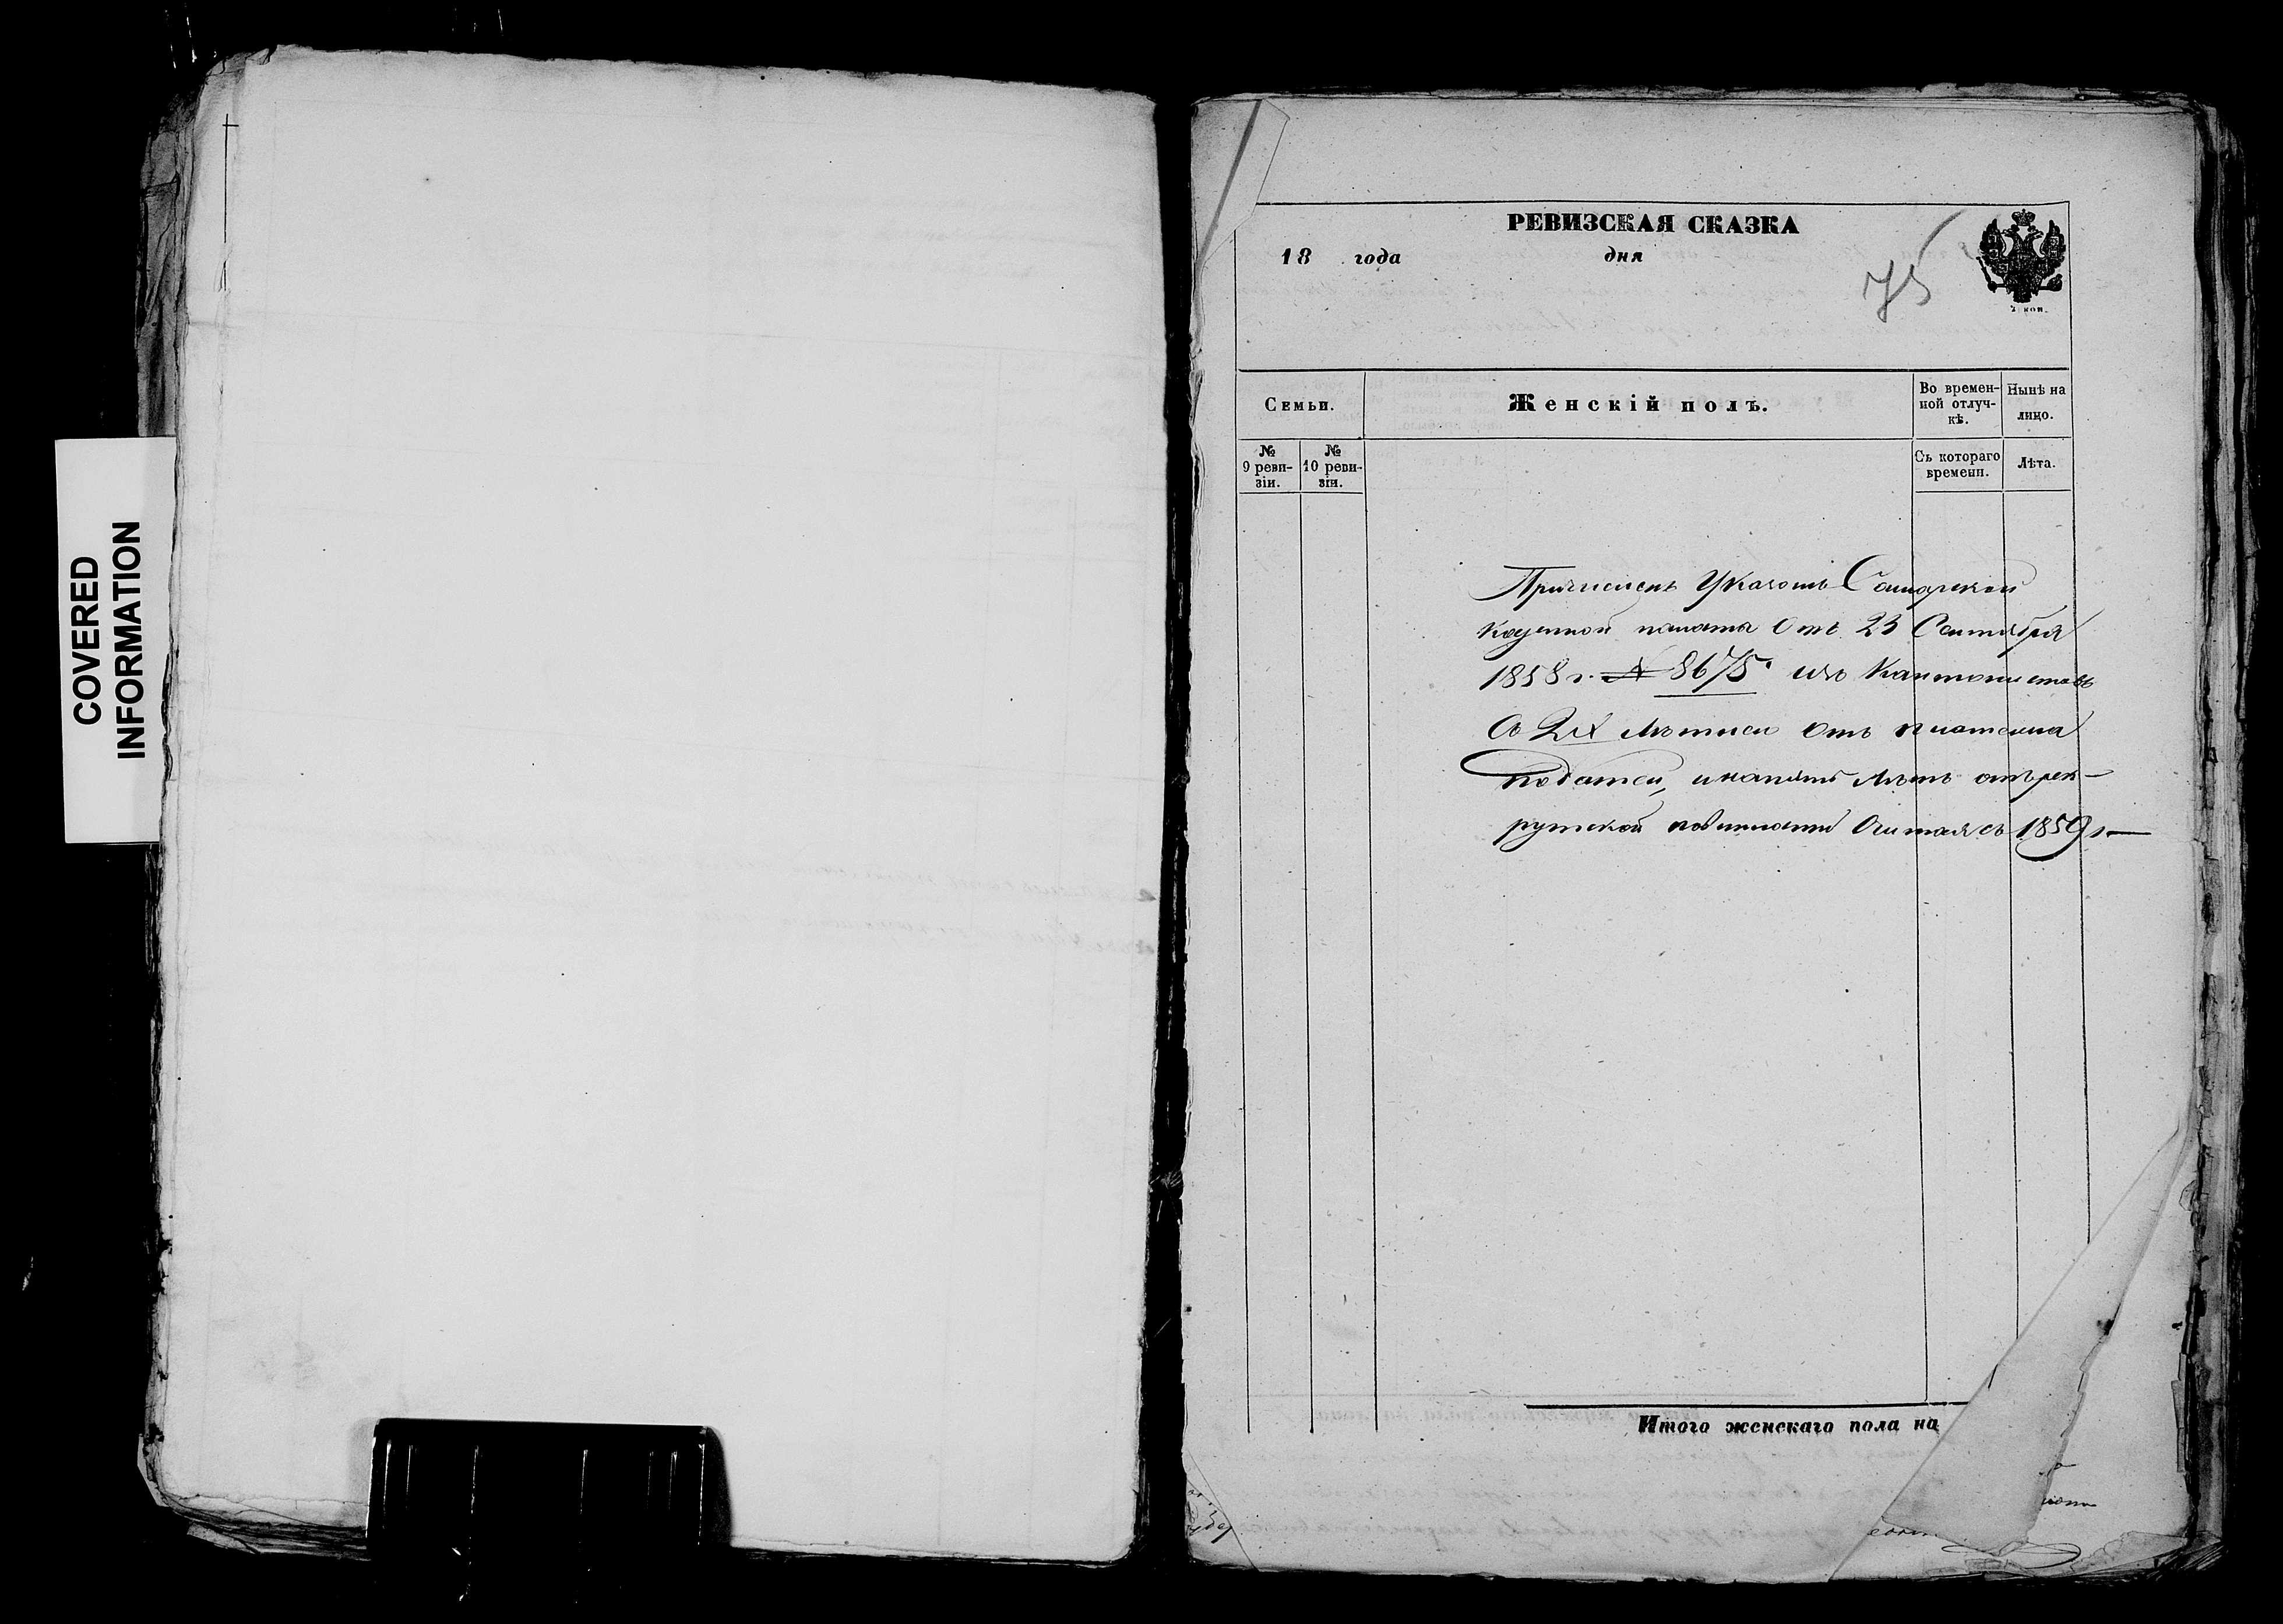 COVERED
INFORMATION
РЕВИЗСКАЯ СКАЗКА
18 года дня
75
2 коп.
Семьи.
Женскій полъ.
Во времен-
ной отлуч-
кѣ.
Нынѣ на
лицо.
№
9 реви-
зіи.
№
10 реви-
зіи.
Съ котораго
времени.
Лѣта.
Причисленъ Указомъ Самарской
Казенной палаты Отъ 23 Сентября
1858 г. № 8675 изъ Кантонистовъ
Съ льготою Отъ платежа
податей, и на лѣтъ отъ рек-
рутской повинности Считая съ 1859 г.
Итого женскаго пола на